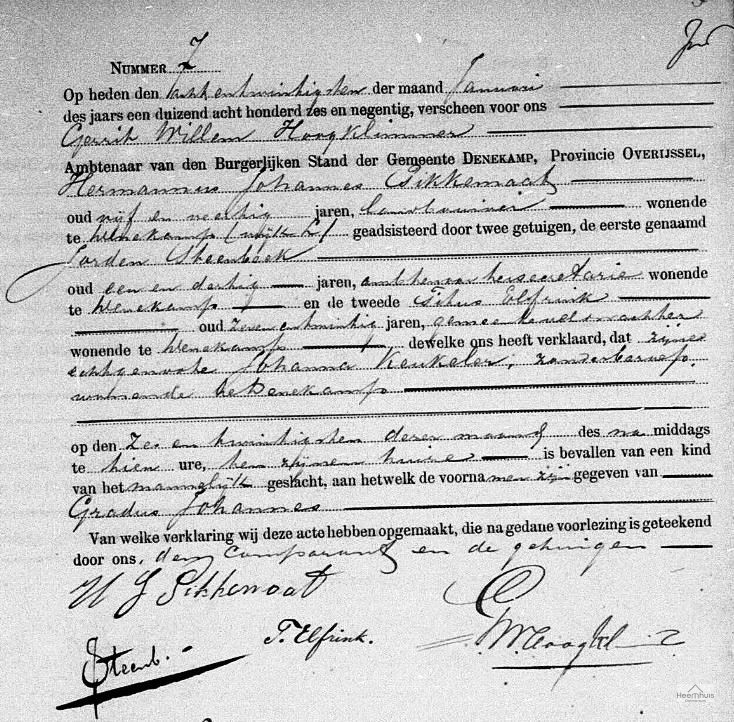 NUMMER 7
Op heden den acht en twintigsten der maand Januari
des jaars een duizend acht honderd zes en negentig, verscheen voor ons
Gerrit Willem Hoogklimmer
Ambtenaar van den Burgerlijken Stand der Gemeente DENEKAMP, Provincie OVERIJSSEL,
Hermannus Johannes Sikkemaat
oud vijf en veertig jaren, landbouwer wonende
te Denekamp (wijk L) geadsisteerd door twee getuigen, de eerste genaamd
Jorden Steenbeek
oud een en dertig jaren, ambtenaar ter secretarie wonende
te Denekamp en de tweede Titus Elfrink
oud zeven en twintig jaren, gemeenteveldwachter
wonende te Denekamp dewelke ons heeft verklaard, dat zijne
echtgenoote Johanna Keukeler, zonder beroep,
wonende te Denekamp
op den zes en twintigsten dezer maand des na middags
te tien ure, ten zijnen huize is bevallen van een kind
van het mannelijk geslacht, aan hetwelk de voornamen zijn gegeven van
Gradus Johannes
Van welke verklaring wij deze acte hebben opgemaakt, die na gedane voorlezing is geteekend
door ons, den comparant en de getuigen
H J Sikkemaat
T. Elfrink.
JSteenb.
GWHoogkl
Heemhuis